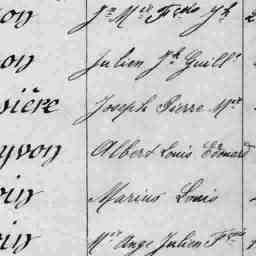 on Jn Mie Fçois Jh
on Julien Jh Guille
sière Joseph Pierre Mie
yvon Albert Louis Edouard
oin Marius Louis
oin Mie Ange Julien Fçois